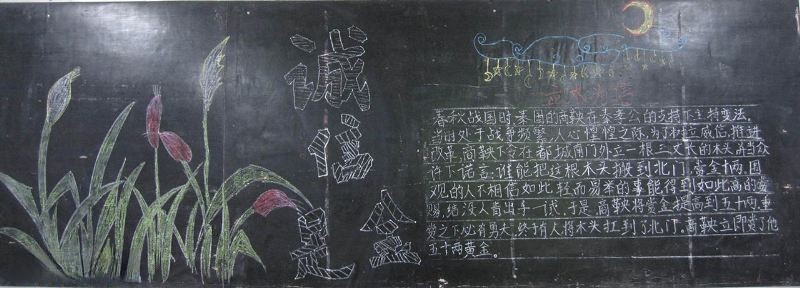 诚信是金
立木为信
春秋战国时秦国的商鞅在秦孝公的支持下主持变法。
当时处于战争频繁、人心惶惶之际,为了树立威信,推进
改革,商鞅下令在都城南门外立一根三丈长的木头,并当众
许下诺言:谁能把这根木头搬到北门,赏金十两。围
观的人不相信如此轻而易举的事能得到如此高的赏
赐,结果没人肯出手一试。于是,商鞅将赏金提高到五十两。重
赏之下必有勇夫,终于有人将木头扛到了北门。商鞅立即赏了他
五十两黄金。